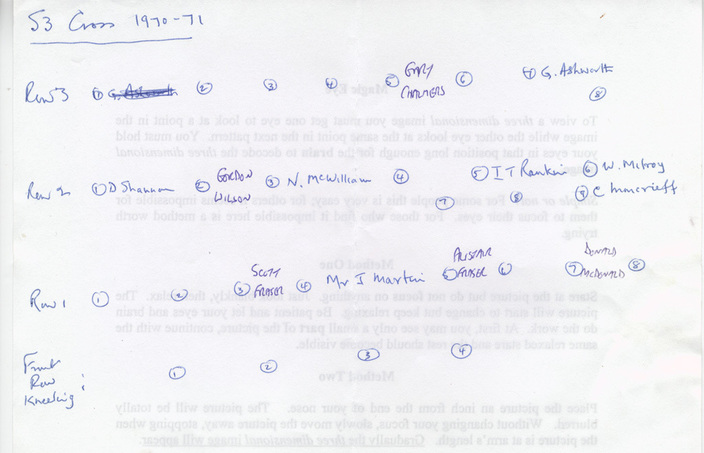 S3 Cross 1970-71
Row 3 ① G. Ashworth ② ③ ④ ⑤ GARY CHALMERS ⑥ ⑦ G. Ashworth ⑧
Row 2 ① D Shannon ② GORDON WILSON ③ N. McWilliam ④ ⑦ ⑤ I T Rankin ⑧ ⑥ W. McIroy ⑨ C Muncrieff
Row 1 ① ② ③ SCOTT FRASER ④ Mr I Martin ⑤ ALISTAIR FRASER ⑥ ⑦ DONALD McDONALD ⑧
Front
Row :
Kneeling ① ② ③ ④
Magic Eye
To view a three dimensional image you must get one eye to look at a point in the
image while the other eye looks at the same point in the next pattern. You must hold
your eyes in that position long enough for the brain to decode the three dimensional
people this is very easy, for others impossible for
them to focus their eyes. For those who find it impossible here is a method worth
trying.
Method One
Stare at the picture but do not focus on anything. The
picture will start to change but keep relaxing. Be patient and let your eyes and brain
do the work. At first, you may see only a small part of the picture, continue with the
same relaxed stare and the rest should become visible.
Method Two
Place the picture an inch from the end of your nose. The picture will be totally
blurred. Without changing your focus, slowly move the picture away, stopping when
the picture is at arm's length. Gradually the three dimensional image will appear.